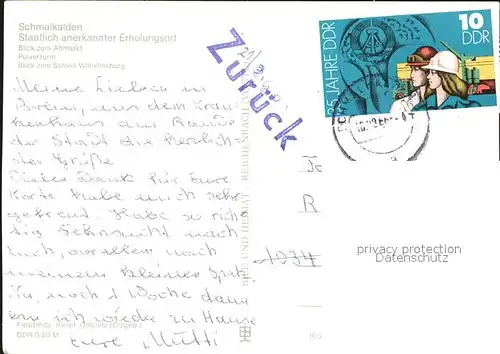 Schmalkalden
Staatlich anerkannter Erholungsort
Blick zum Altmarkt
Pulverturm
Blick zum Schloß Wilhelmsburg
Zurück
35 JAHRE DDR
10
DDR
Meine Lieben in
Berlin, aus dem Kran-
kenhaus am Rande
der Stadt die herzlich-
sten Grüße
Vielen Dank für Eure
Karte habe mich sehr
gefreut. Habe so rich-
tig Sehnsucht nach
Euch, vor allem nach
meinem kleinen Spatz.
noch 1 Woche dann
bin ich wieder zu Hause
Eure Mutti
BILD UND HEIMAT REICHENBACH
1034
privacy protection
Datenschutz